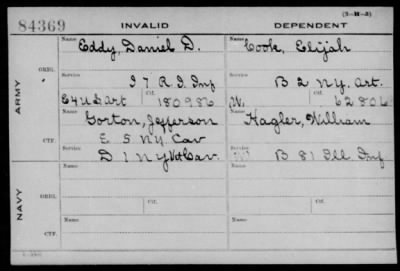 (3-H-3)
84369 INVALID DEPENDENT
Name Eddy, Daniel D. Name Cook, Elijah
ORIG.
ARMY
Service I 7 R I Inf Service B 2 N.Y. Art.
E 4 U S Art Ctf. 180986 W. Ctf. 62806
Name Gorton, Jefferson Name Hagler, William
CTF. E 5 N.Y. Cav
D 1 N Y Vet Cav. W B 81 Ill Inf
NAVY
ORIG.
Name Name
Service Service
Ctf. Ctf.
Name Name
CTF.